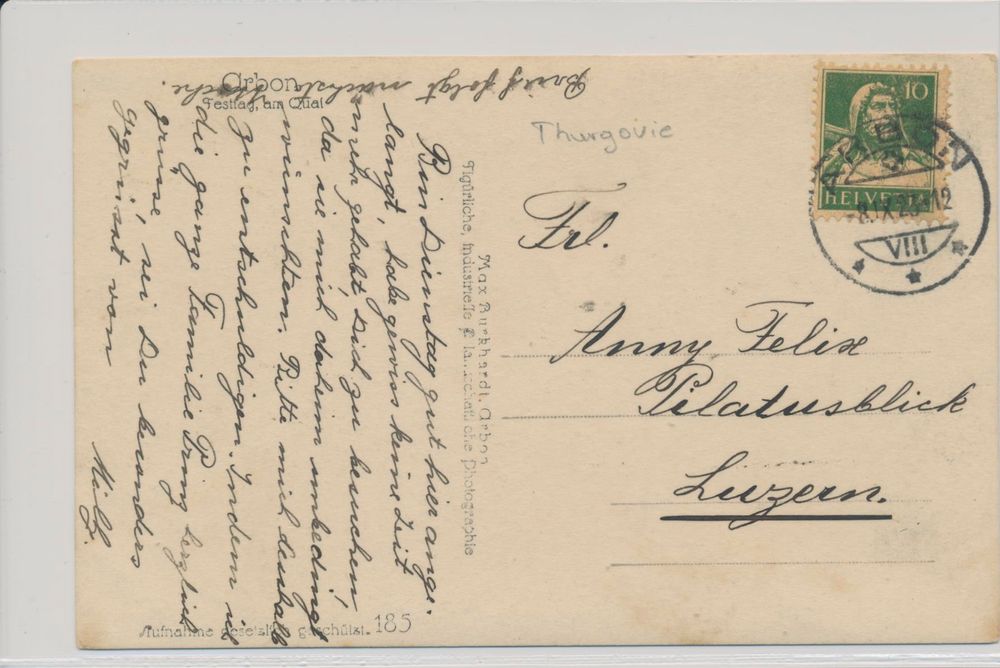 Arbon
Festtag am Quai
Brief folgt nächste Woche.
Bin Dienstag gut hier ange-
langt, habe gewiss keine Zeit
mehr gehabt Dich zu besuchen,
da sie mich daheim unbedingt
wünschten. Bitte mich deshalb
zu entschuldigen. Indem ich
die ganze Familie herzlich
grüsse, sei Du besonders
gegrüsst von
Max Burkhardt, Arbon
Figürliche, industrielle & landschaftliche Photographie
Aufnahme gesetzlich geschützt. 185
Thurgovie
10
HELVETIA
ARBON
-8.IX.25-12
VIII
Frl.
Anny Felix
Pilatusblick
Luzern.